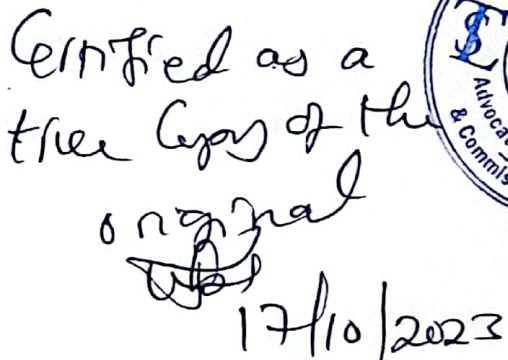 Certified as a
true Copy of the
original
17/10/2023
Advocat
& Commis